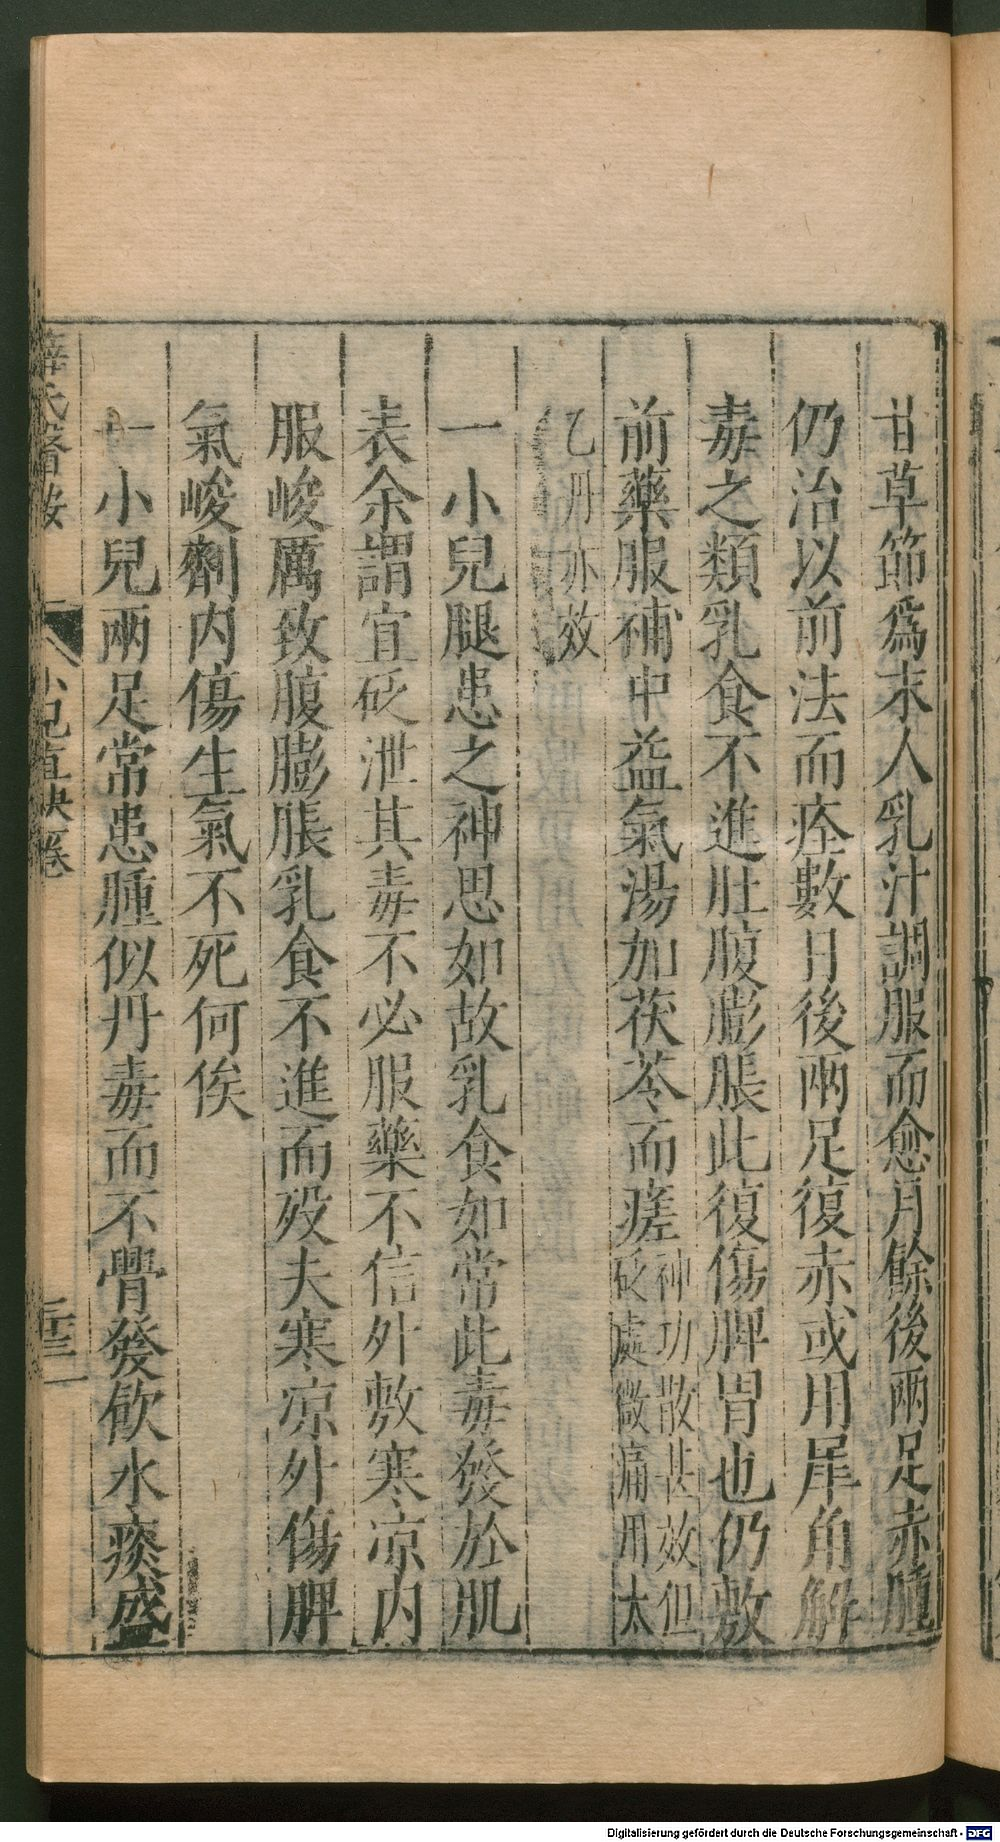 甘草節爲末人乳汁調服而愈月餘後兩足赤腫
仍治以前法而痊數日後兩足復赤或用犀角解
毒之類乳食不進肚腹膨脹此復傷脾胃也仍敷
前藥服補中益氣湯加茯苓而瘥神功散甚效但砭處微痛用太
乙丹亦效
一小兒腿患之神思如故乳食如常此毒發於肌
表余謂宜砭泄其毒不必服藥不信外敷寒凉内
服峻厲致腹膨脹乳食不進而歿夫寒凉外傷脾
氣峻劑内傷生氣不死何俟
一小兒兩足常患腫似丹毒而不覺發飲水痰盛
薛氏醫按 小兒直訣卷
Digitalisierung gefördert durch die Deutsche Forschungsgemeinschaft - DFG